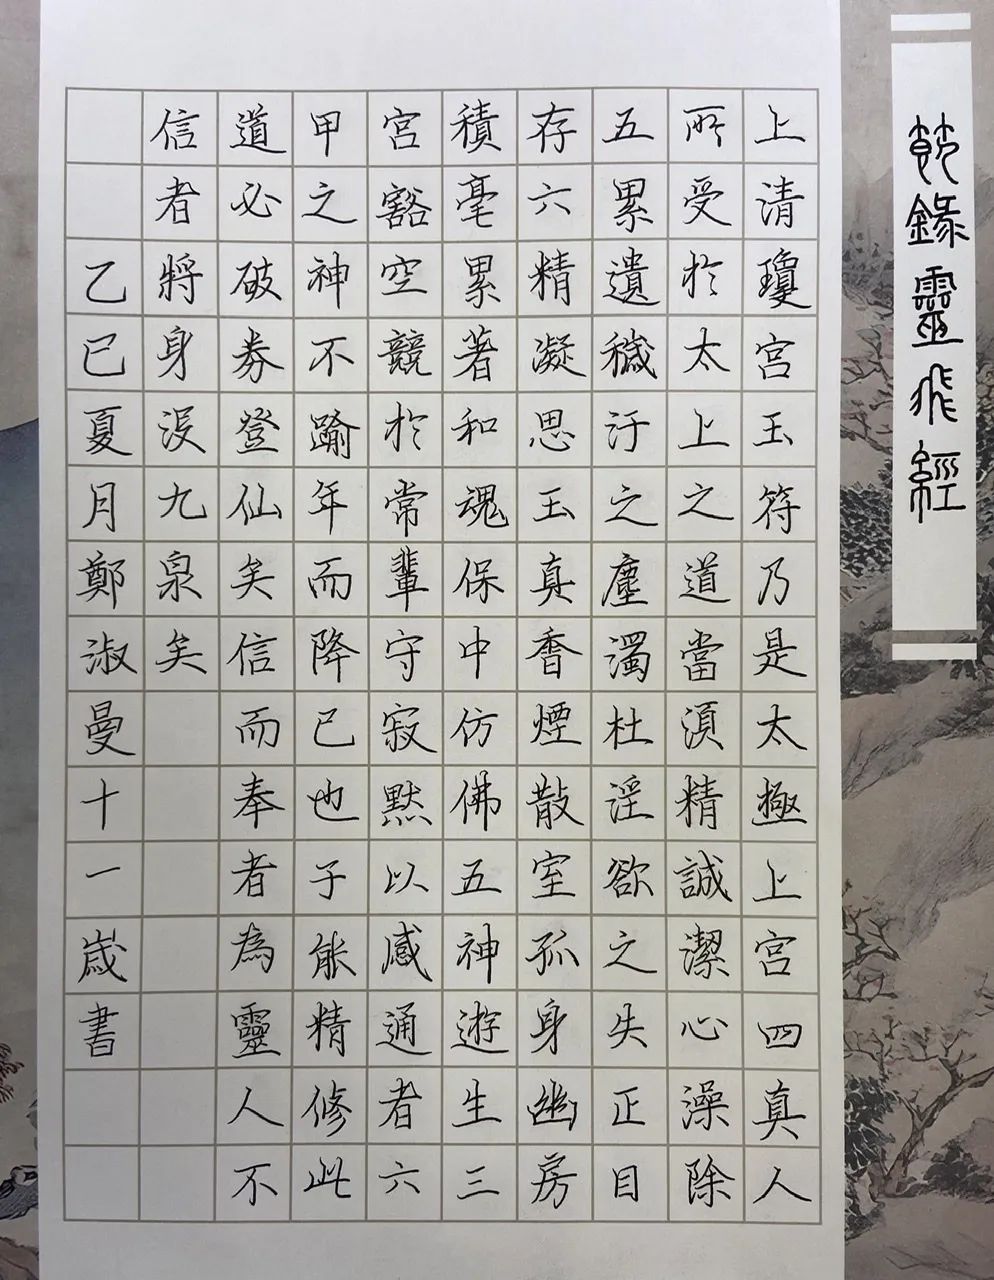 節錄靈飛經
上清瓊宮玉符乃是太極上宮四真人
所受於太上之道當須精誠潔心澡除
五累遺穢汙之塵濁杜淫欲之失正目
存六精凝思玉真香煙散室孤身幽房
積毫累著和魂保中仿佛五神遊生三
宮豁空競於常輩守寂默以感通者六
甲之神不踰年而降已也子能精修此
道必破券登仙矣信而奉者為靈人不
信者將身沒九泉矣
乙巳夏月鄭淑曼十一歲書